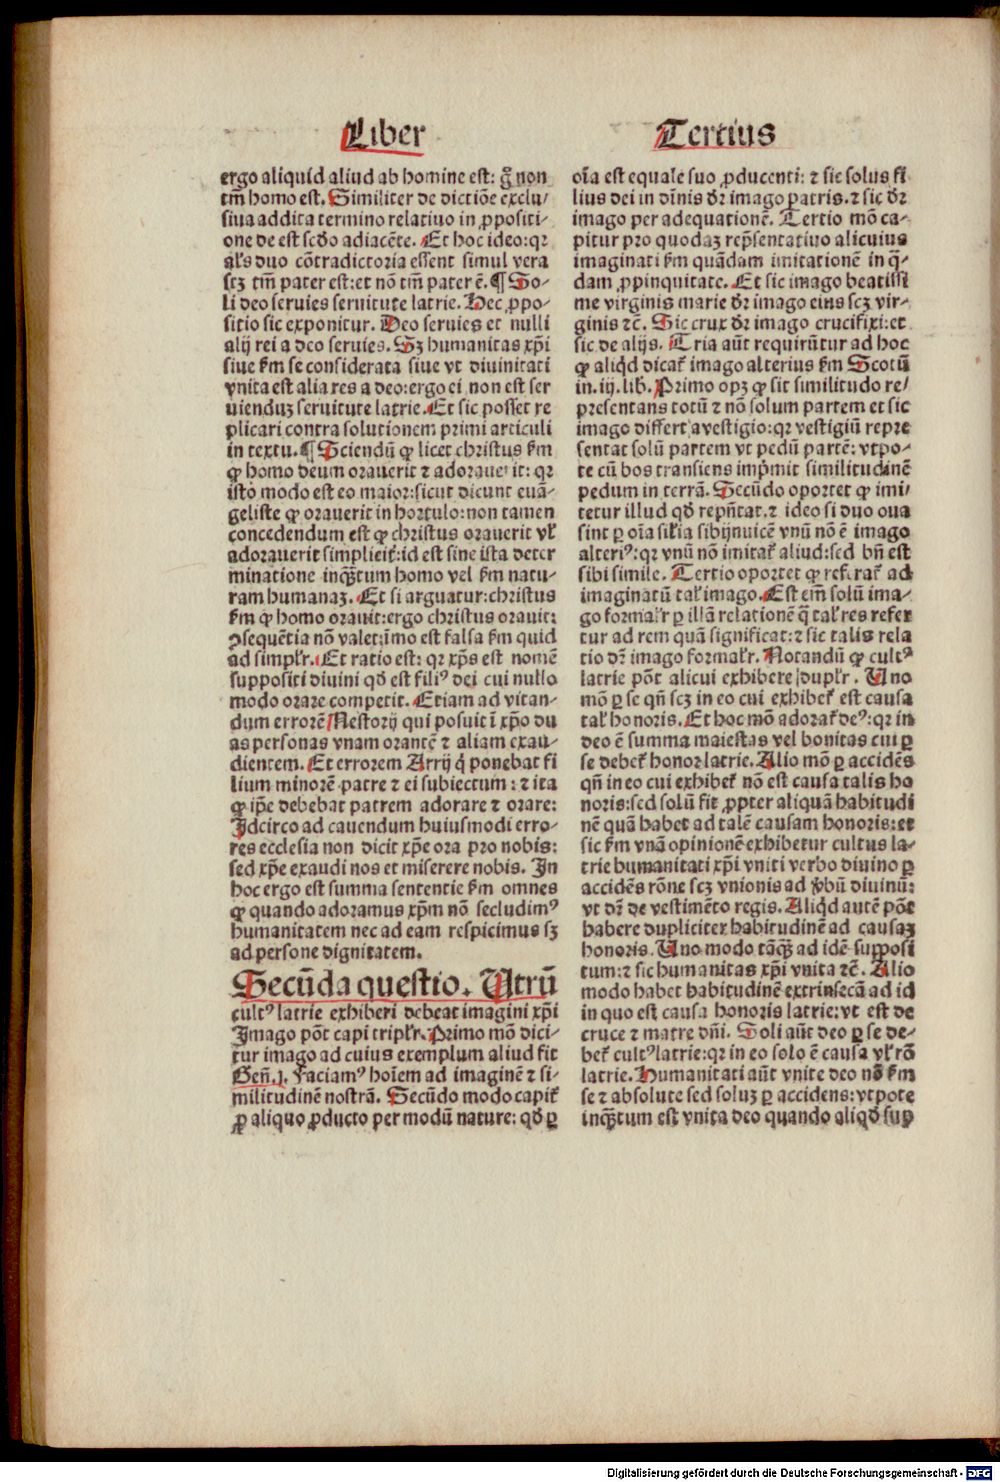 Liber
Tertius
ergo aliquid aliud ab homine est: gͦ non
tm̄ homo est. Similiter de dictiōe exclu/
siua addita termino relatiuo in ꝓpositi-
one de est scd̓o adiacēte. Et hoc ideo: qꝛ
al̓s duo cōtradictoria essent simul vera
scꝫ tm̄ pater est: et nō tm̄ pater ē. ¶ So-
li deo seruies seruitute latrie. Hec ꝓpo-
sitio sic exponitur. Deo seruies et nulli
alij rei a deo seruies. Sꝫ humanitas xp̄i
siue ẜm se considerata siue vt diuinitati
vnita est alia res a deo: ergo ei non est ser
uienduꝫ seruitute latrie. Et sic posset re
plicari contra solutionem primi articuli
in textu. ¶ Sciendū ꝙ licet christus ẜm
ꝙ homo deum orauerit ⁊ adorauerit: qꝛ
isto modo est eo maior: sicut dicunt euā-
geliste ꝙ orauerit in hortulo: non tamen
concedendum est ꝙ christus orauerit vl̓
adorauerit simplicit̓: id est sine ista deter
minatione inqꝫtum homo vel ẜm natu-
ram humanaꝫ. Et si arguatur: christus
ẜm ꝙ homo orauit: ergo christus orauit:
ꝯsequētia nō valet: īmo est falsa ẜm quid
ad simpl̓r. Et ratio est: qꝛ xp̄s est nomē
suppositi diuini qd̓ est filiꝰ dei cui nullo
modo orare competit. Etiam ad vitan-
dum errorē Nestorij qui posuit ī xp̄o du
as personas vnam orantē ⁊ aliam exau-
dientem. Et errorem Arrij q̇ ponebat fi
lium minorē patre ⁊ ei subiectum: ⁊ ita
ꝙ ip̄e debebat patrem adorare ⁊ orare:
Idcirco ad cauendum huiusmodi erro-
res ecclesia non dicit xp̄e ora pro nobis:
sed xp̄e exaudi nos et miserere nobis. In
hoc ergo est summa sententie ẜm omnes
ꝙ quando adoramus xp̄m nō secludimꝰ
humanitatem nec ad eam respicimus sꝫ
ad persone dignitatem.
Secūda questio. Utrū
cultꝰ latrie exhiberi debeat imagini xp̄i
Imago pōt capi tripl̓r. Primo mō dici-
tur imago ad cuius exemplum aliud fit
Geñ.j. Faciamꝰ hoīem ad imaginē ⁊ si-
militudinē nostrā. Secūdo modo capit̓
ꝓ aliquo ꝓducto per modū nature: qd̓ ꝑ
oīa est equale suo ꝓducenti: ⁊ sic solus fi
lius dei in dīnis dr̄ imago patris. ⁊ sic dr̄
imago per adequationē. Tertio mō ca-
pitur pro quodaꝫ rep̄sentatiuo alicuius
imaginati ẜm quādam imitationē in q̄-
dam ꝓpinquitate. Et sic imago beatissi
me virginis marie dr̄ imago eius scꝫ vir-
ginis ⁊c̄. Sic crux dr̄ imago crucifixi: et
sic de alijs. Tria aūt requirūtur ad hoc
ꝙ aliqd̓ dicat̓ imago alterius ẜm Scotū
in.iij.lib. Primo opꝫ ꝙ sit similitudo re/
presentans totū ⁊ nō solum partem et sic
imago differt a vestigio: qꝛ vestigiū repre
sentat solū partem vt pedū partē: vtpo-
te cū bos transiens imp̄mit similitudinē
pedum in terrā. Secūdo oportet ꝙ imi/
tetur illud qd̓ rep̄ntat. ⁊ ideo si duo oua
sint ꝑ oīa sil̓ia sibijnuicē vnū nō ē imago
alteriꝰ: qꝛ vnū nō imitat̓ aliud: sed bn̄ est
sibi simile. Tertio oportet ꝙ referat̓ ad
imaginatū tal̓ imago. Est em̄ solū ima-
go formal̓r ꝑ illā relationē q̄ tal̓ res refer
tur ad rem quā significat: ⁊ sic talis rela
tio dr̄ imago formal̓r. Notandū ꝙ cultꝰ
latrie pōt alicui exhibere dupl̓r. Uno
mō ꝑ se qn̄ scꝫ in eo cui exhibet̓ est causa
tal̓ honoris. Et hoc mō adorat̓ deꝰ: qꝛ in
deo ē summa maiestas vel bonitas cui ꝑ
se debet̓ honor latrie. Alio mō ꝑ accidēs
qn̄ in eo cui exhibet̓ nō est causa talis ho
noris: sed solū fit ꝓpter aliquā habitudi
nē quā habet ad talē causam honoris: et
sic ẜm vnā opinionē exhibetur cultus la-
trie humanitati xp̄i vniti verbo diuino ꝑ
accidēs rōne scꝫ vnionis ad v̓bū diuinū:
vt dr̄ de vestimēto regis. Aliqd̓ autē pōt
habere dupliciter habitudinē ad causaꝫ
honoris. Uno modo tāqꝫ ad idē supposi
tum: ⁊ sic humanitas xp̄i vnita ⁊c̄. Alio
modo habet habitudinē extrinsecā ad id
in quo est causa honoris latrie: vt est de
cruce ⁊ matre dn̄i. Soli aūt deo ꝑ se de-
bet̓ cultꝰ latrie: qꝛ in eo solo ē causa vl̓ rō
latrie. Humanitati aūt vnite deo nō ẜm
se ⁊ absolute sed soluꝫ ꝑ accidens: vtpote
inqꝫtum est vnita deo quando aliqd̓ sup
Digitalisierung gefördert durch die Deutsche Forschungsgemeinschaft - DFG